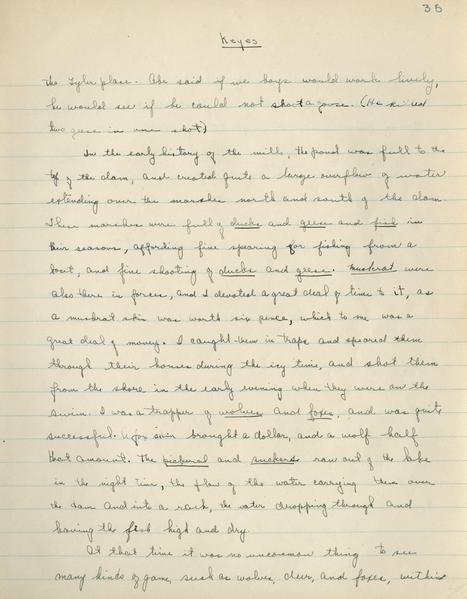 35
Keyes
the Tyler place. Abe said if we boys would work lively,
he would see if he could not shoot a goose. (He killed
two geese in one shot)
In the early history of the mill, the pond was full to the
top of the dam, and created quite a large overflow of water
extending over the marshes north and south of the dam
These marshes were full of ducks and geese and fish in
their seasons, affording fine spearing for fishing from a
boat, and fine shooting of ducks and geese. Muskrat were
also there in forces, and I devoted a great deal of time to it, as
a muskrat skin was worth six pence, which to me was a
great deal of money. I caught them in traps and speared them
through their houses during the icy time, and shot them
from the shore in the early evening when they were on the
swim. I was a trapper of wolves and foxes, and was quite
successful. A fox skin brought a dollar, and a wolf half
that amount. The pickerel and suckers ran out of the lake
in the night time, the flow of the water carrying them over
the dam and into a rack, the water dropping through and
leaving the fish high and dry.
At that time it was no uncommon thing to see
many kinds of game, such as wolves, deer, and foxes, within